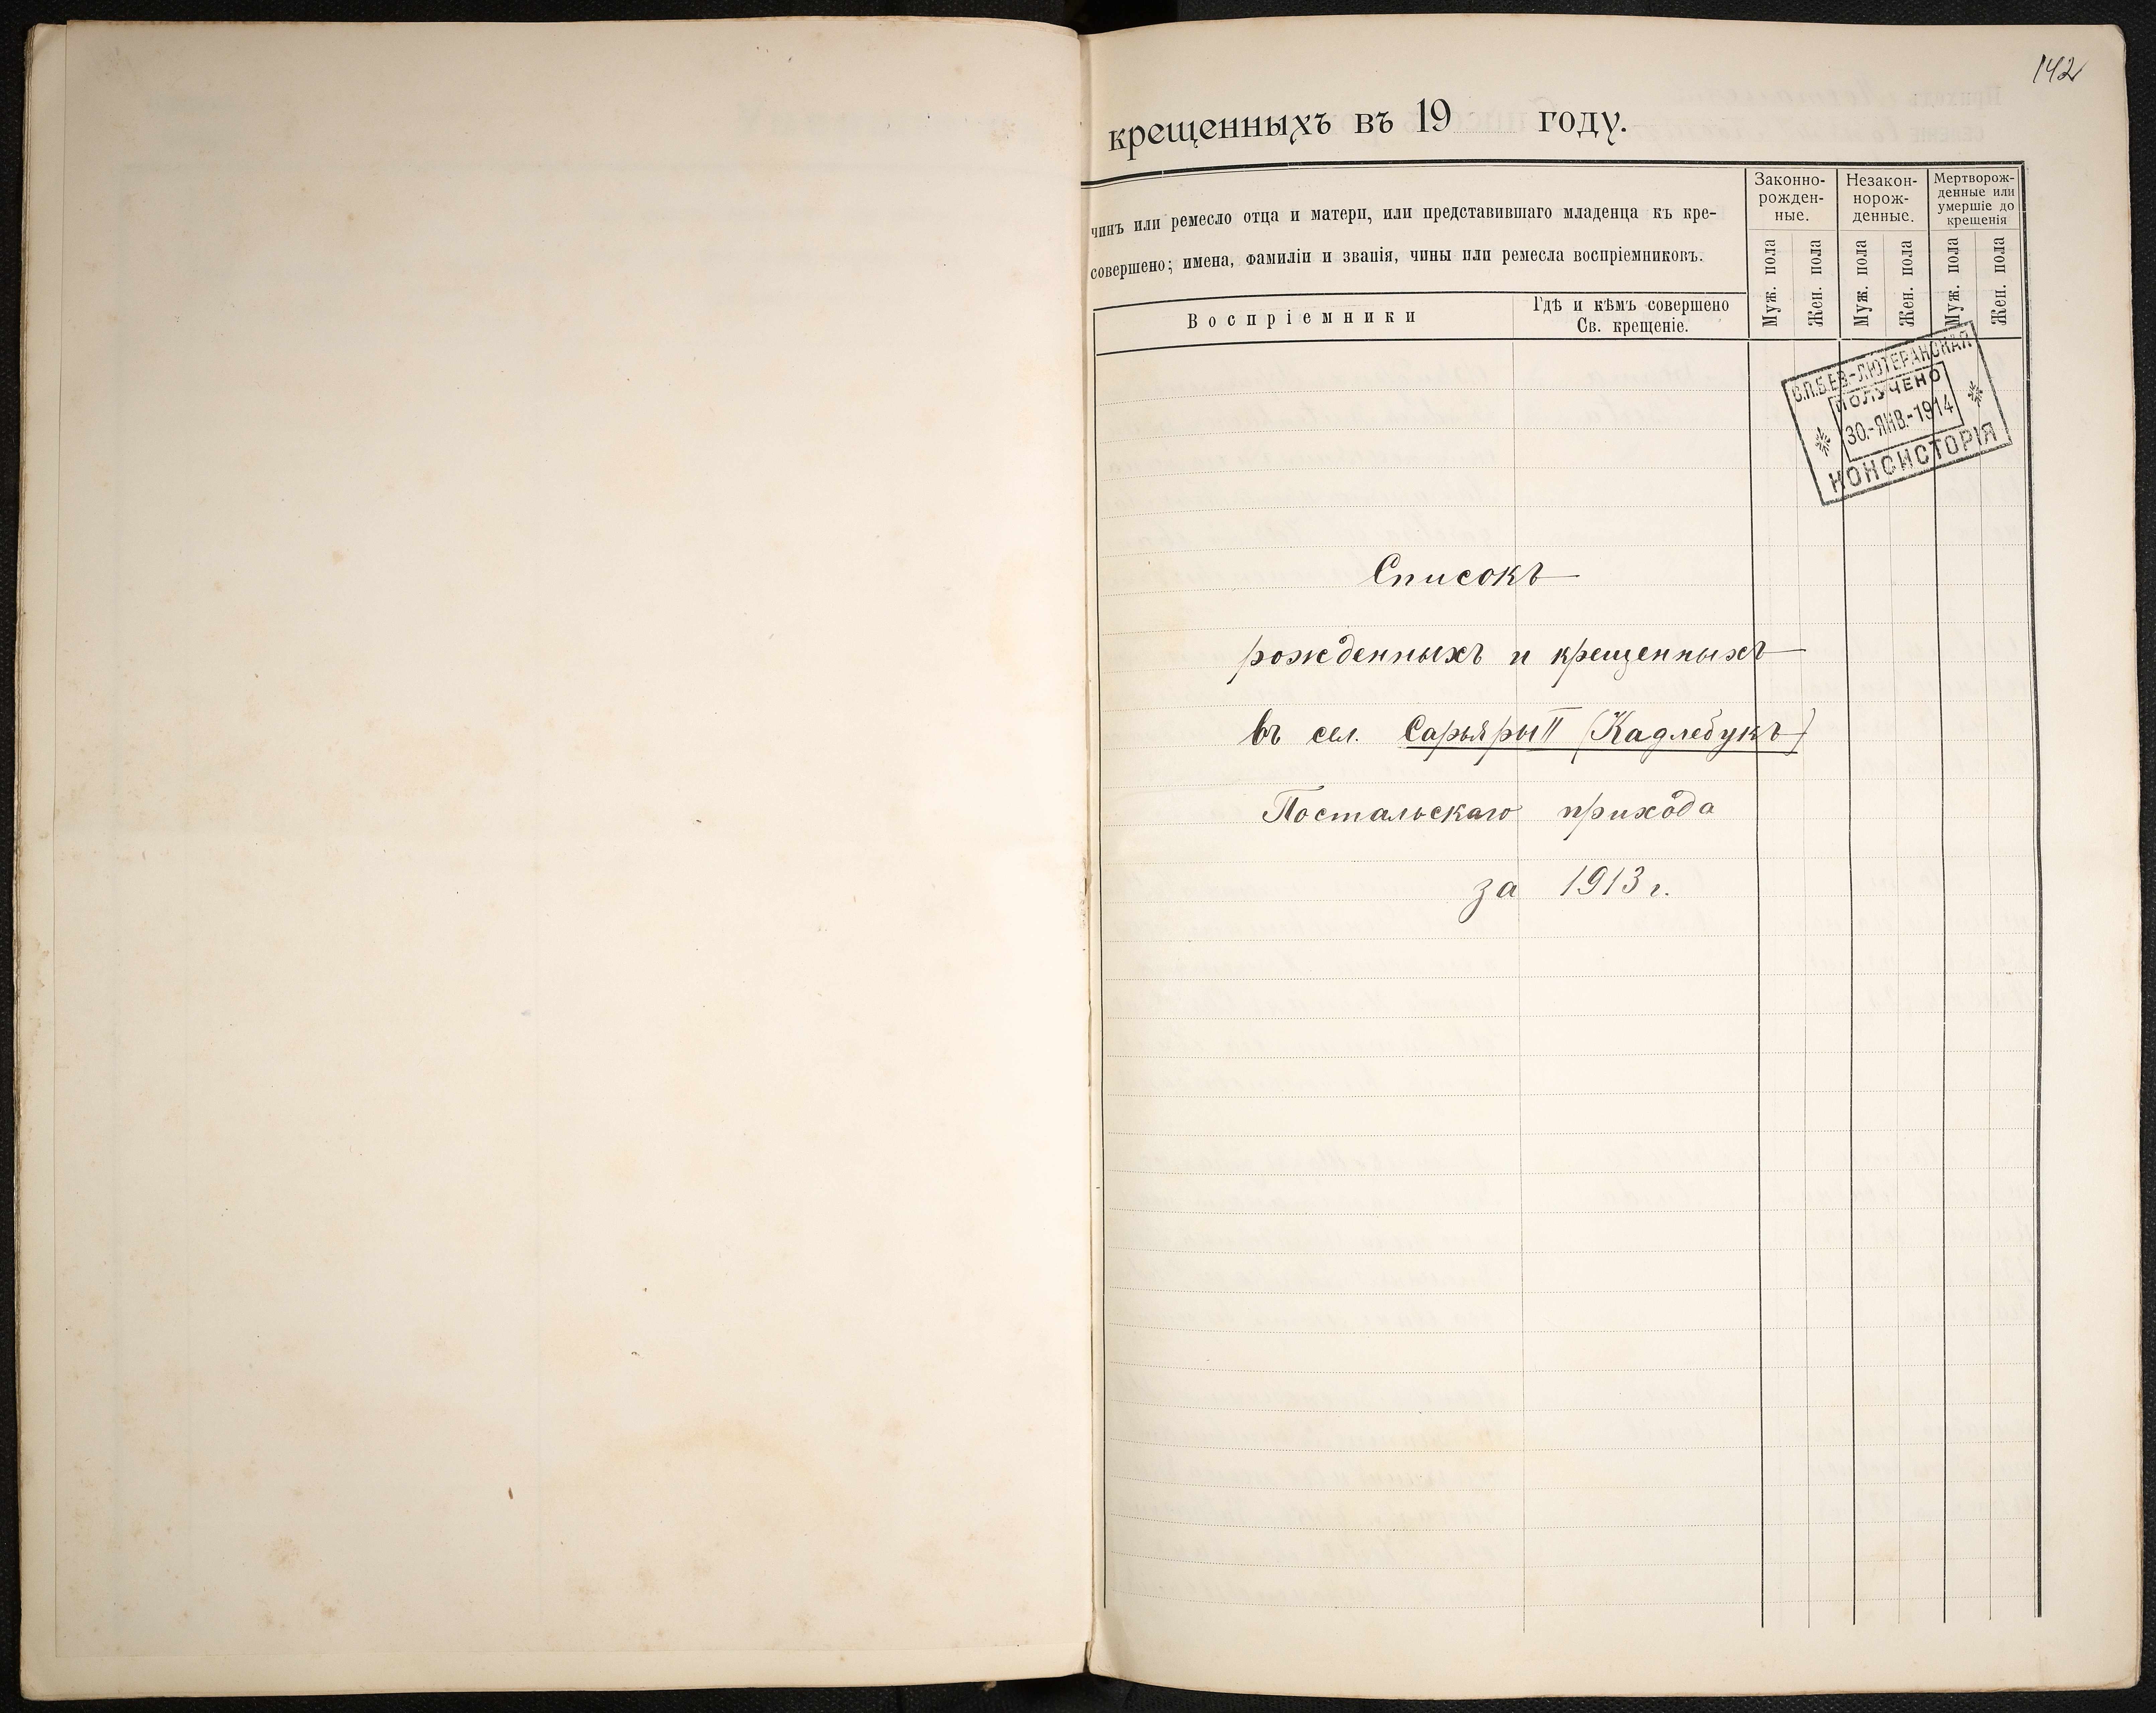 142
крещенныхъ въ 19 году.
чинъ или ремесло отца и матери, или представившаго младенца къ кре-
совершено; имена, фамиліи и званія, чины или ремесла воспріемниковъ.
Воспріемники
Гдѣ и кѣмъ совершено
Св. крещеніе.
Законно-
рожден-
ные.
Незакон-
норож-
денные.
Мертворож-
денные или
умершіе до
крещенія
Муж. пола
Жен. пола
Муж. пола
Жен. пола
Муж. пола
Жен. пола
С.П.Б.ЕВ.-ЛЮТЕРАНСКАЯ
ПОЛУЧЕНО
30.-ЯНВ.-1914
КОНСИСТОРІЯ
Списокъ
рожденныхъ и крещенныхъ
въ сел. Сарьяры II (Кадлебукъ)
Постальскаго прихода
за 1913 г.